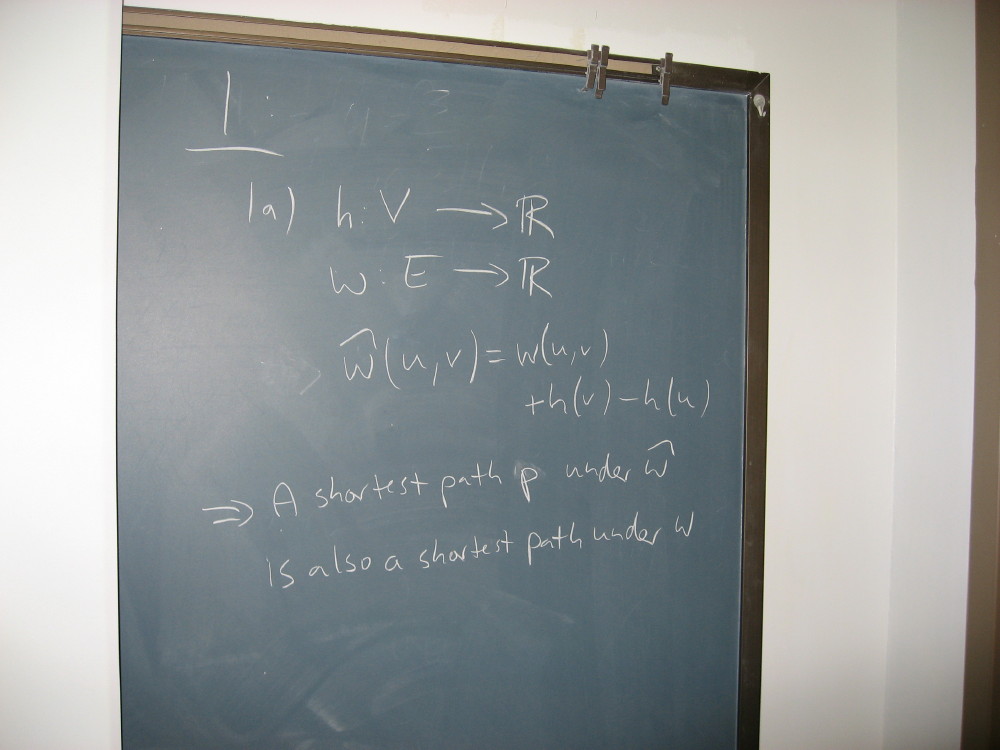 1:
1a) h: V → ℝ
w: E → ℝ
ŵ(u,v) = w(u,v)
+h(v) – h(u)
⇒ A shortest path p under ŵ
is also a shortest path under w